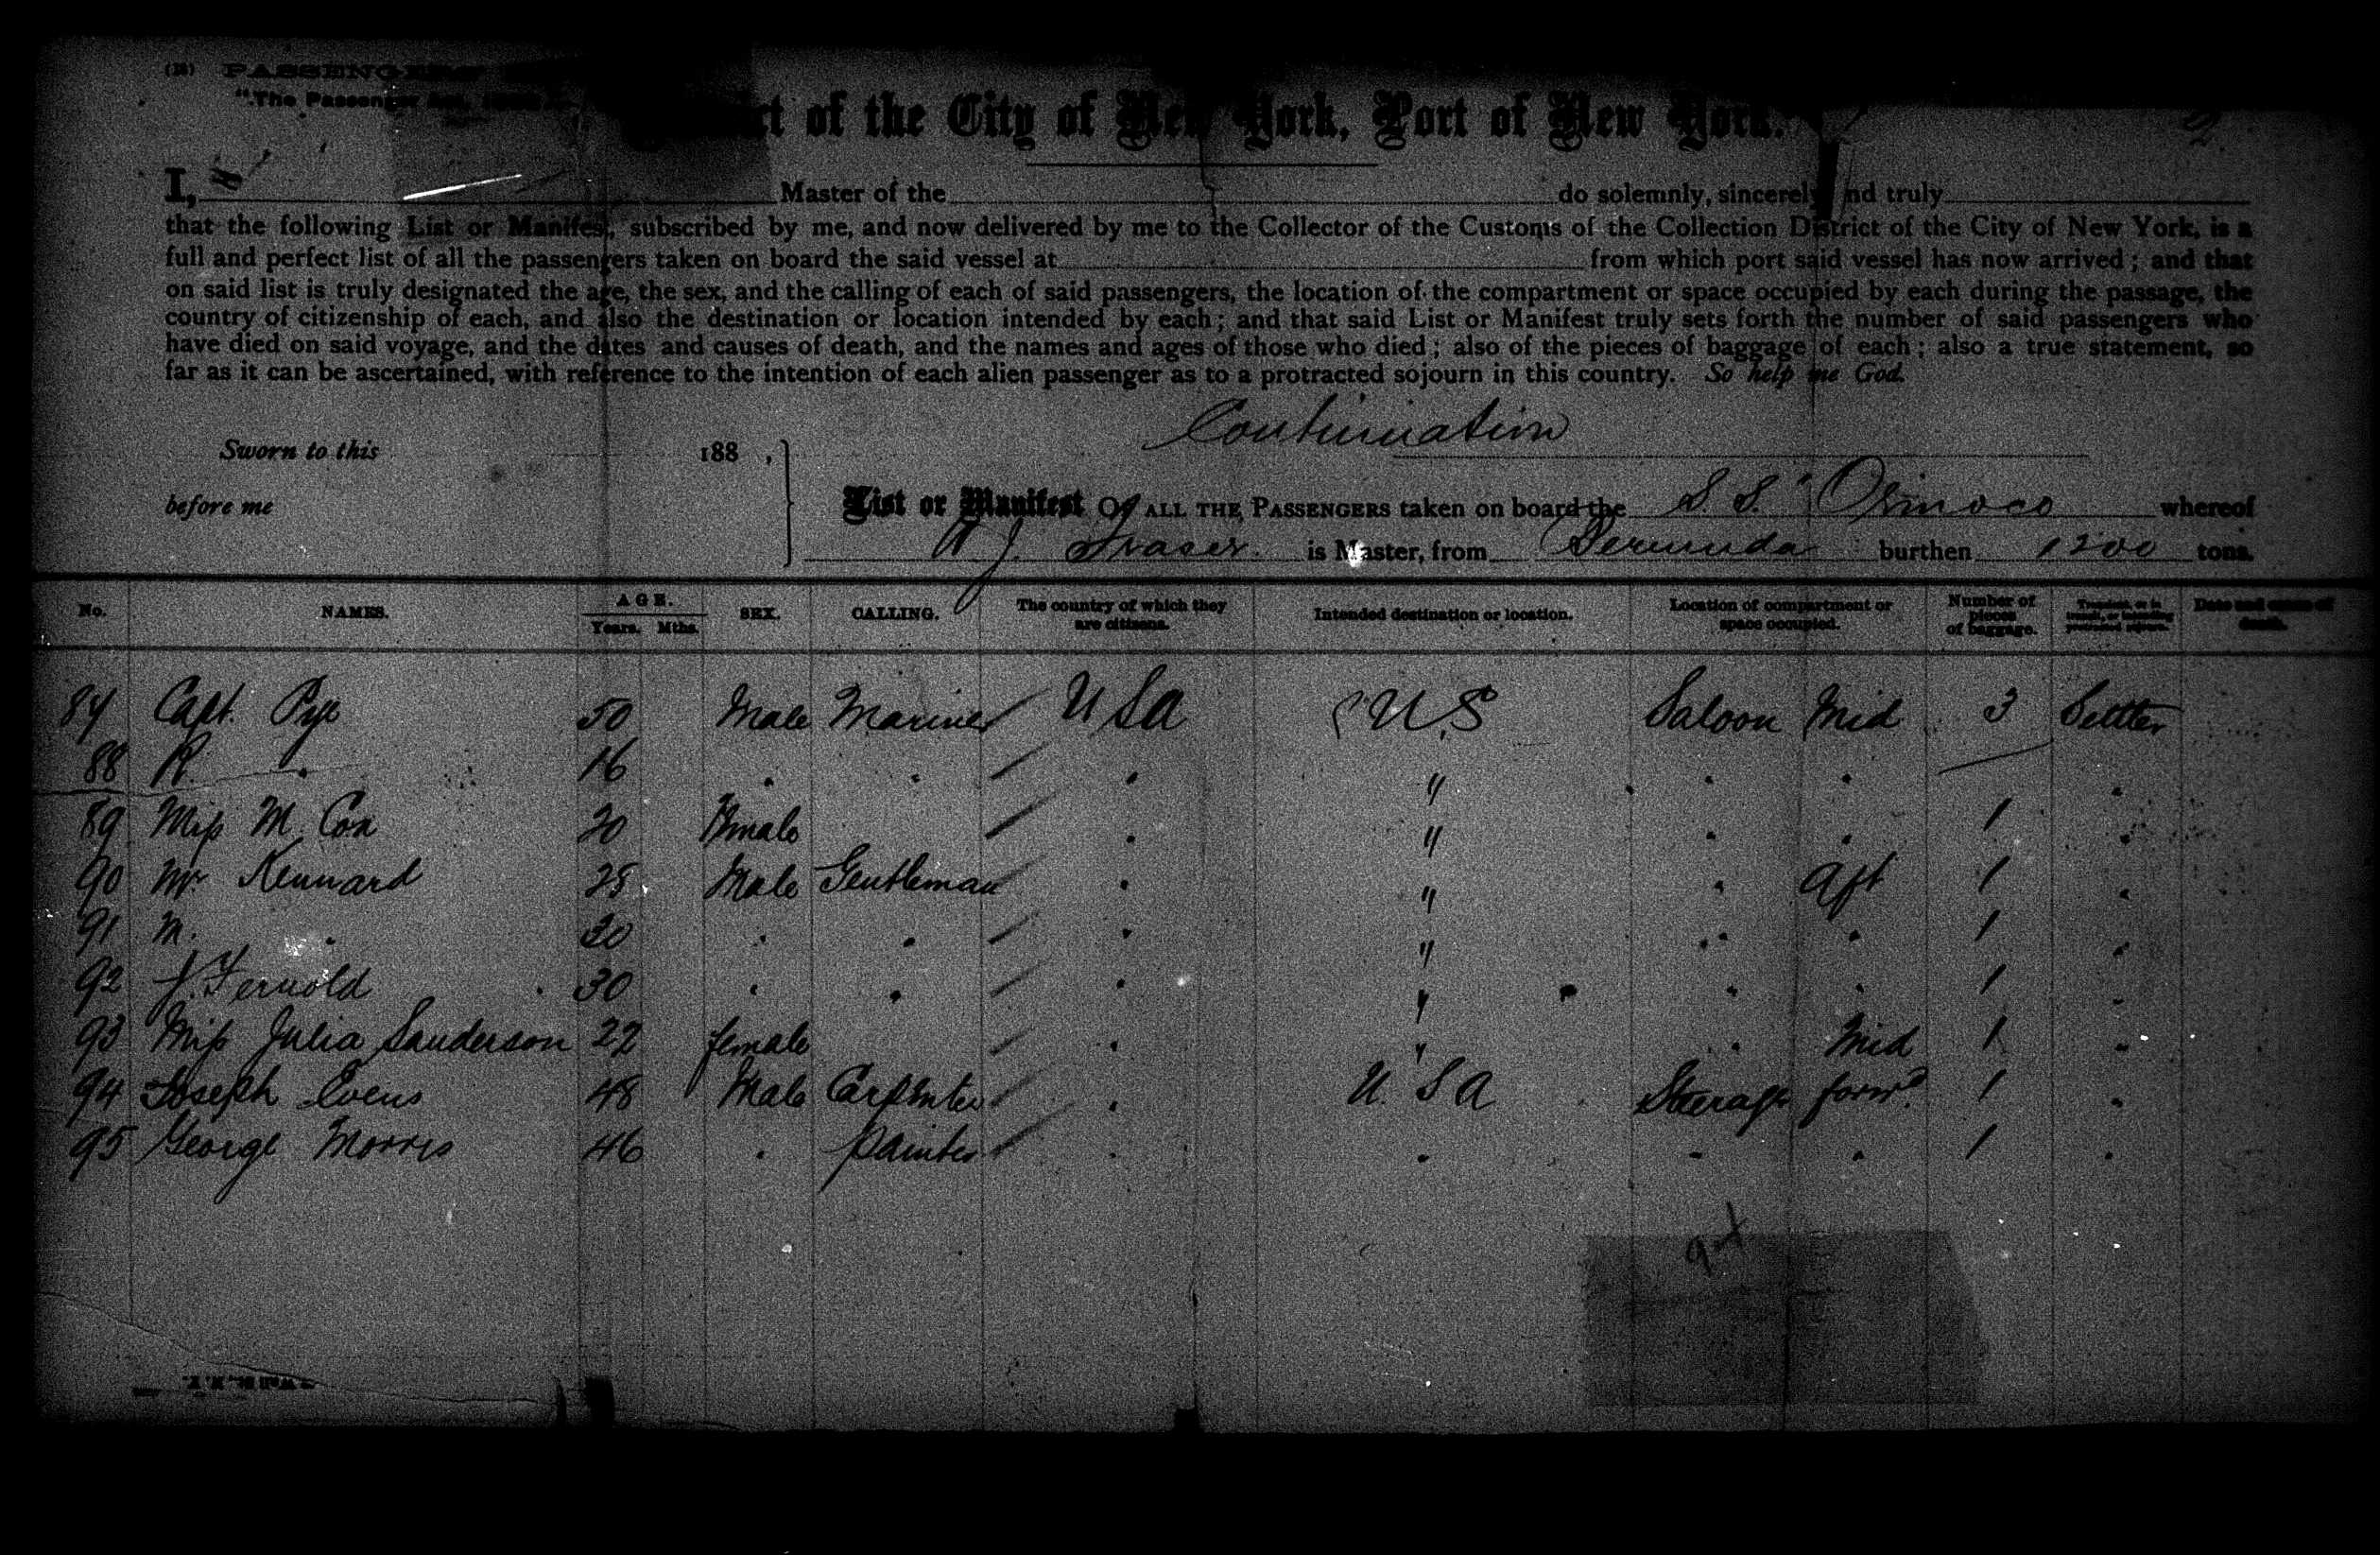 (B) PASSENGERS
"The Passenger Act,
of the City of New York, Port of New York.
2
I, Master of the do solemnly, sincerely and truly
that the following List or Manifest, subscribed by me, and now delivered by me to the Collector of the Customs of the Collection District of the City of New York, is a
full and perfect list of all the passengers taken on board the said vessel at from which port said vessel has now arrived; and that
on said list is truly designated the age, the sex, and the calling of each of said passengers, the location of the compartment or space occupied by each during the passage, the
country of citizenship of each, and also the destination or location intended by each; and that said List or Manifest truly sets forth the number of said passengers who
have died on said voyage, and the dates and causes of death, and the names and ages of those who died; also of the pieces of baggage of each; also a true statement, so
far as it can be ascertained, with reference to the intention of each alien passenger as to a protracted sojourn in this country. So help me God.
Continuation
Sworn to this 188 ,
before me
List or Manifest OF ALL THE PASSENGERS taken on board the S.S. "Orinoco whereof
A J. Fraser. is Master, from Bermuda burthen 1200 tons.
No. NAMES. AGE. Years. Mths. SEX. CALLING. The country of which they are citizens. Intended destination or location. Location of compartment or space occupied. Number of pieces of baggage. Transient, or in transit, or intending protracted sojourn. Date and cause of death.
84 Capt. Pye 50 Male Mariner USA U.S Saloon Mid 3 Settler
88 R. " 16 " " " " " " "
89 Miss M. Cox 20 Female " " " " 1 "
90 Mr Kennard 28 Male Gentleman " " " Aft 1 "
91 M. " 30 " " " " " " 1 "
92 J. Fernold 30 " " " " " " 1 "
93 Miss Julia Sanderson 22 female " " " Mid 1 "
94 Joseph Evens 48 Male Carpenter " U.S A Steerage forwd 1 "
95 George Morris 46 " painter " " " " 1 "